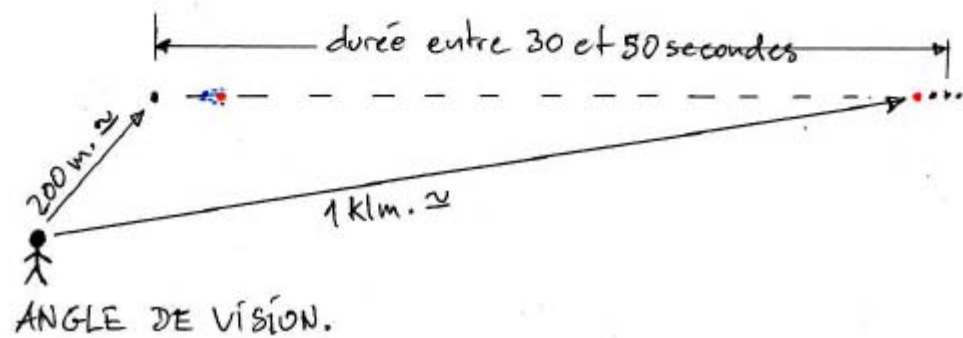 durée entre 30 et 50 secondes
200 m. ≃
1 klm. ≃
ANGLE DE VISION.